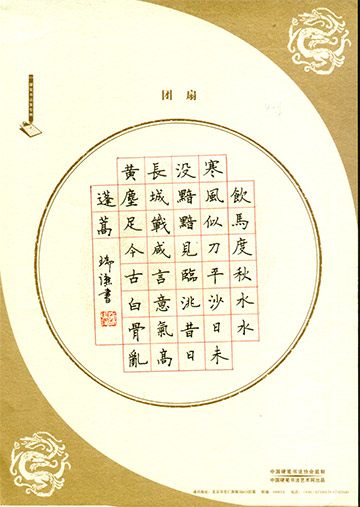 团扇
飲馬度秋水水
寒風似刀平沙日未
没黯黯見臨洮昔日
長城戰咸言意氣高
黄塵足今古白骨亂
蓬蒿
瑞 書
中国硬笔书法协会监制
中国硬笔书法艺术网出品